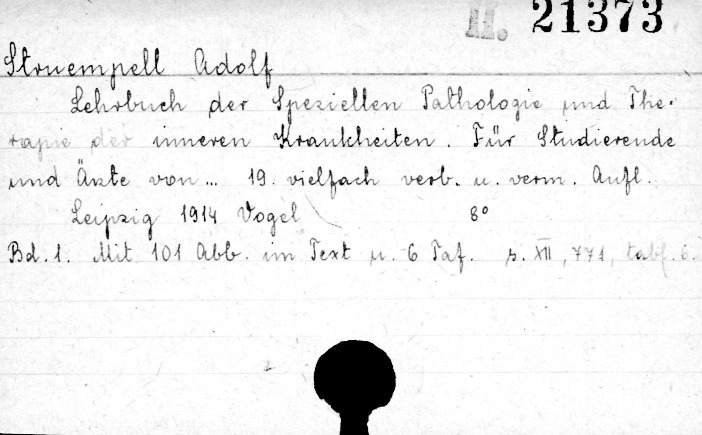 II. 21373
Struempell Adolf
Lehrbuch der Speziellen Pathologie und The-
rapie der inneren Krankheiten. Für Studierende
und Ärzte von... 19. vielfach verb. u. verm. Aufl.
Leipzig 1914 Vogel 8°
Bd. 1. Mit 101 Abb. im Text u. 6 Taf. s. XII, 771, tabl. 6.